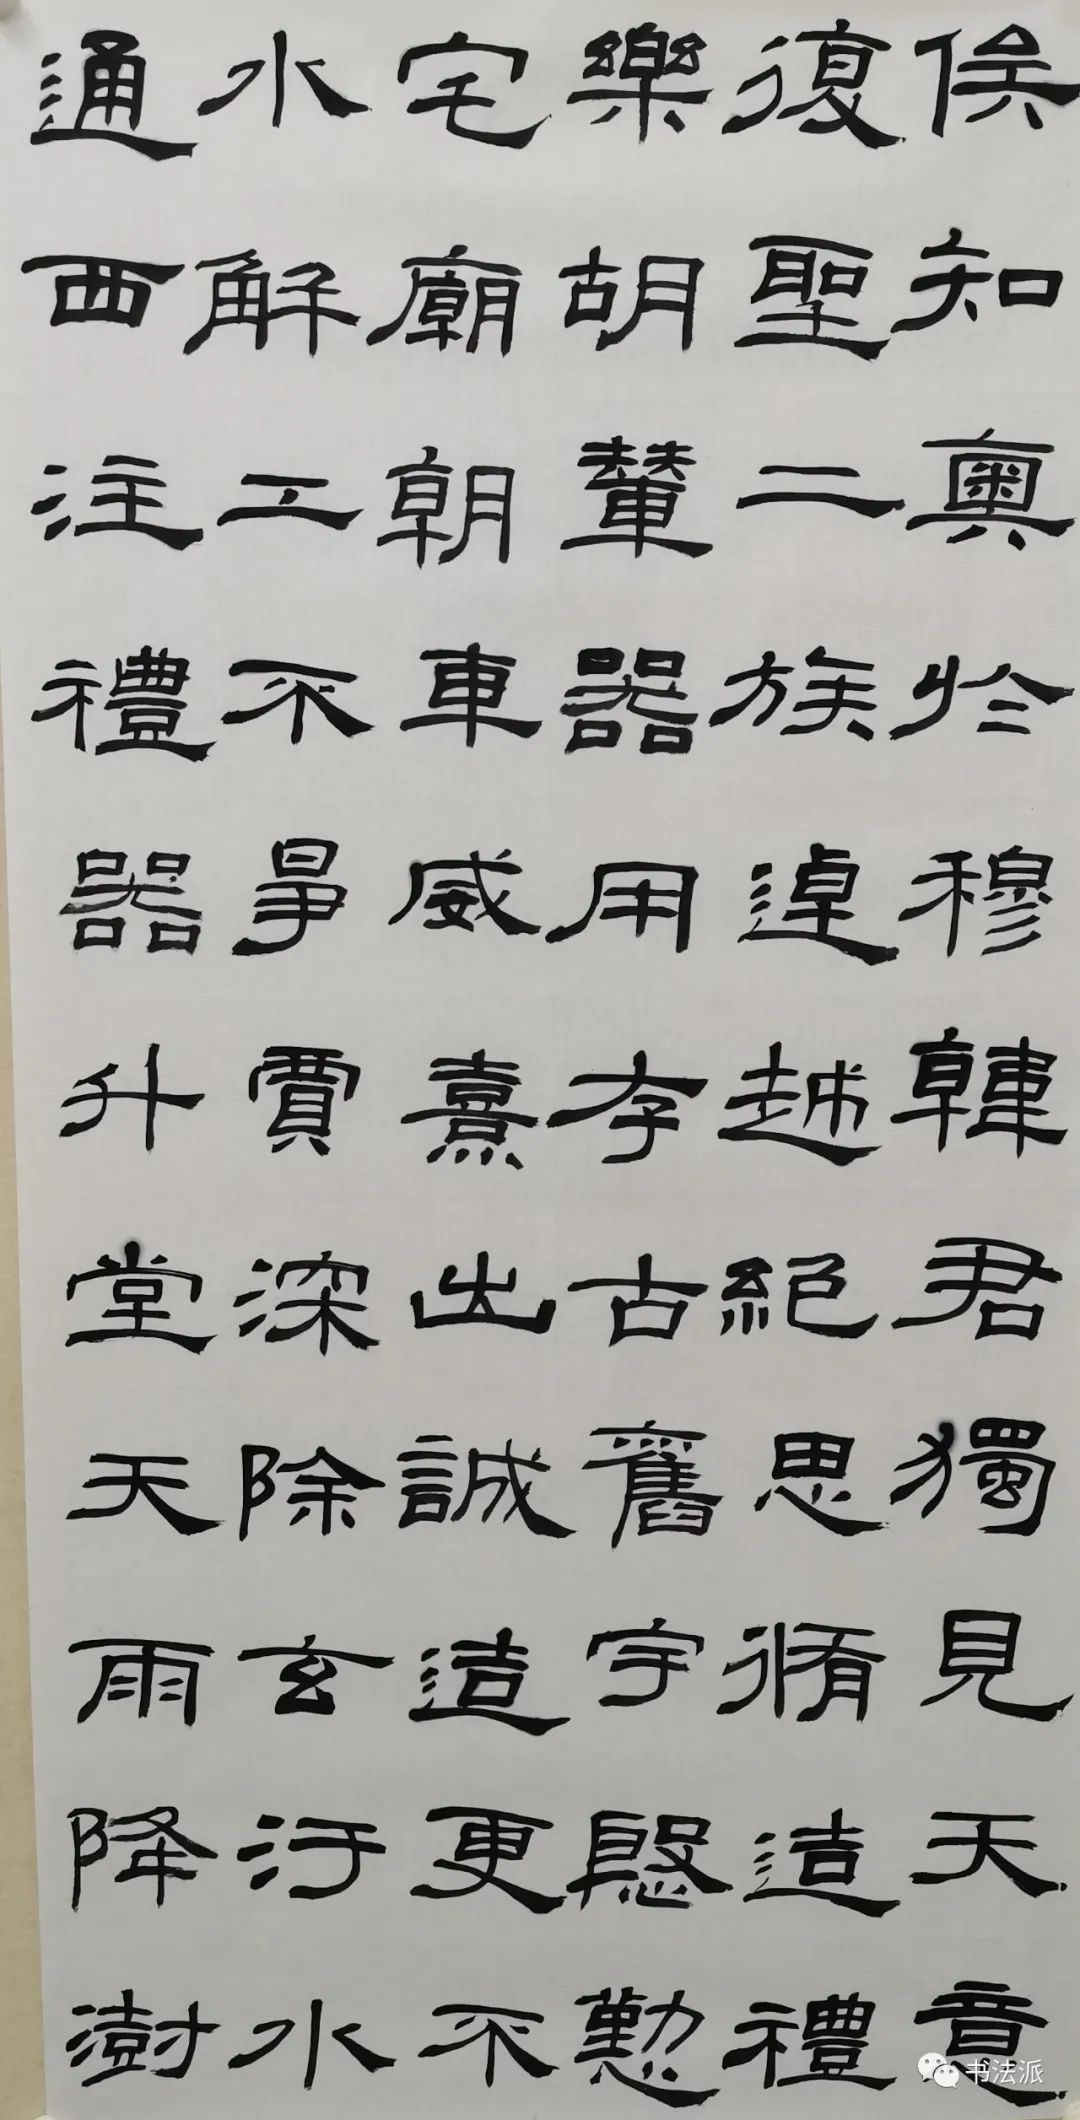 俟知奧於穆韓君獨見天意
復聖二族逴越絕思脩造禮
樂胡輦器用存古舊宇慇懃
宅廟朝車威熹出誠造更不
水解工不爭賈深除玄汙水
通西注禮器升堂天雨降澍
书法派